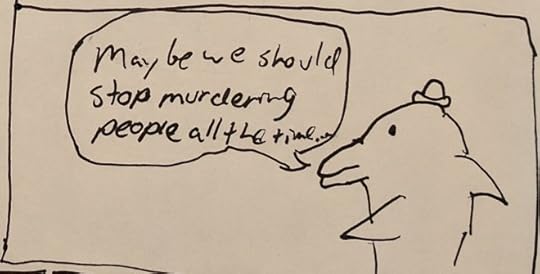 Maybe we should
stop murdering
people all the time...